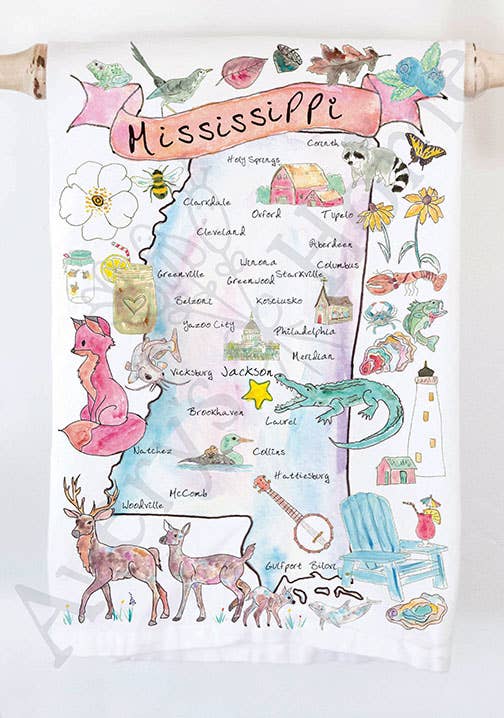 Mississippi
Corinth
Holly Springs
Clarkdale
Oxford Tupelo
Cleveland
Aberdeen
Winona Columbus
Greenville Greenwood Starkville
Belzoni Kosciusko
Yazoo City Philadelphia
Meridian
Vicksburg Jackson
Brookhaven Laurel
Natchez Collins
Hattiesburg
McComb
Woodville
Gulfport Biloxi